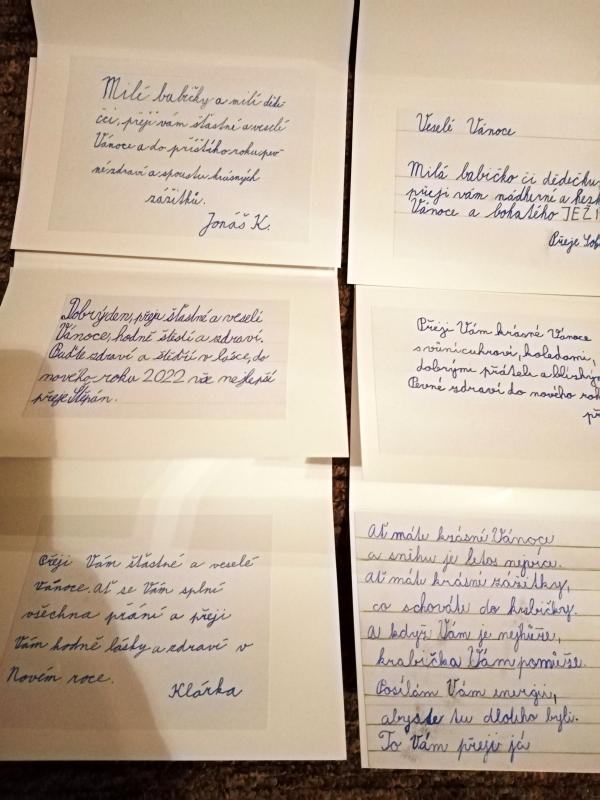 Milé babičky a milí děde-
čci, přeji vám šťastné a veselé
Vánoce a do příštího roku pev-
né zdraví a spoustu krásných
zážitků.
Jonáš K.
Veselé Vánoce
Milá babičko či dědečku,
přeji vám nádherné a
Vánoce a bohatého JEŽI
Přeje
Dobrý den, přeju šťastné a veselé
Vánoce, hodně štěstí a zdraví.
Buďte zdraví a štěstí v lásce, do
nového roku 2022 vše nejlepší
přeje Štěpán.
Přeji Vám krásné Vánoce
s vůní cukroví, koledami,
dobrými přáteli a blízkým
Pevné zdraví do nového rok
př
Přeji Vám šťastné a veselé
Vánoce. Ať se Vám splní
všechna přání a přeji
Vám hodně lásky a zdraví v
Novém roce.
Klárka
Ať máte krásné Vánoce
a sněhu je letos nejvíce.
Ať máte krásné zážitky,
co schováte do krabičky.
A když Vám je nejhůře,
krabička Vám pomůže.
Posílám Vám energii,
abyste tu dlouho byli.
To Vám přeji já